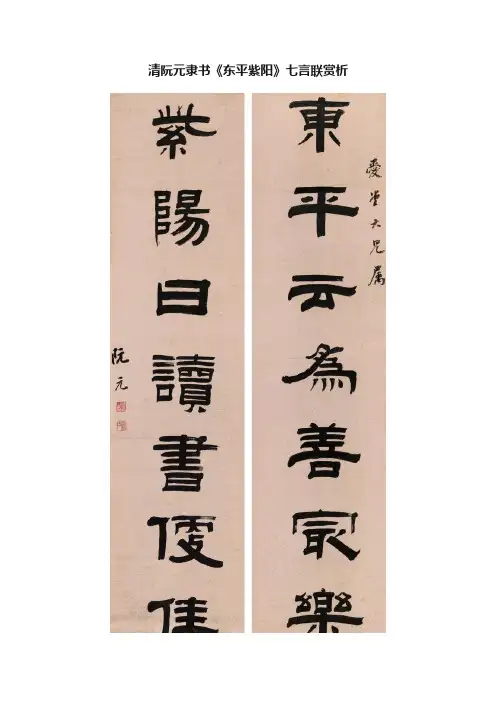 清阮元隶书《东平紫阳》七言联赏析
愛堂大兄屬
東平云為善㝡樂
紫陽曰讀書便佳
阮元